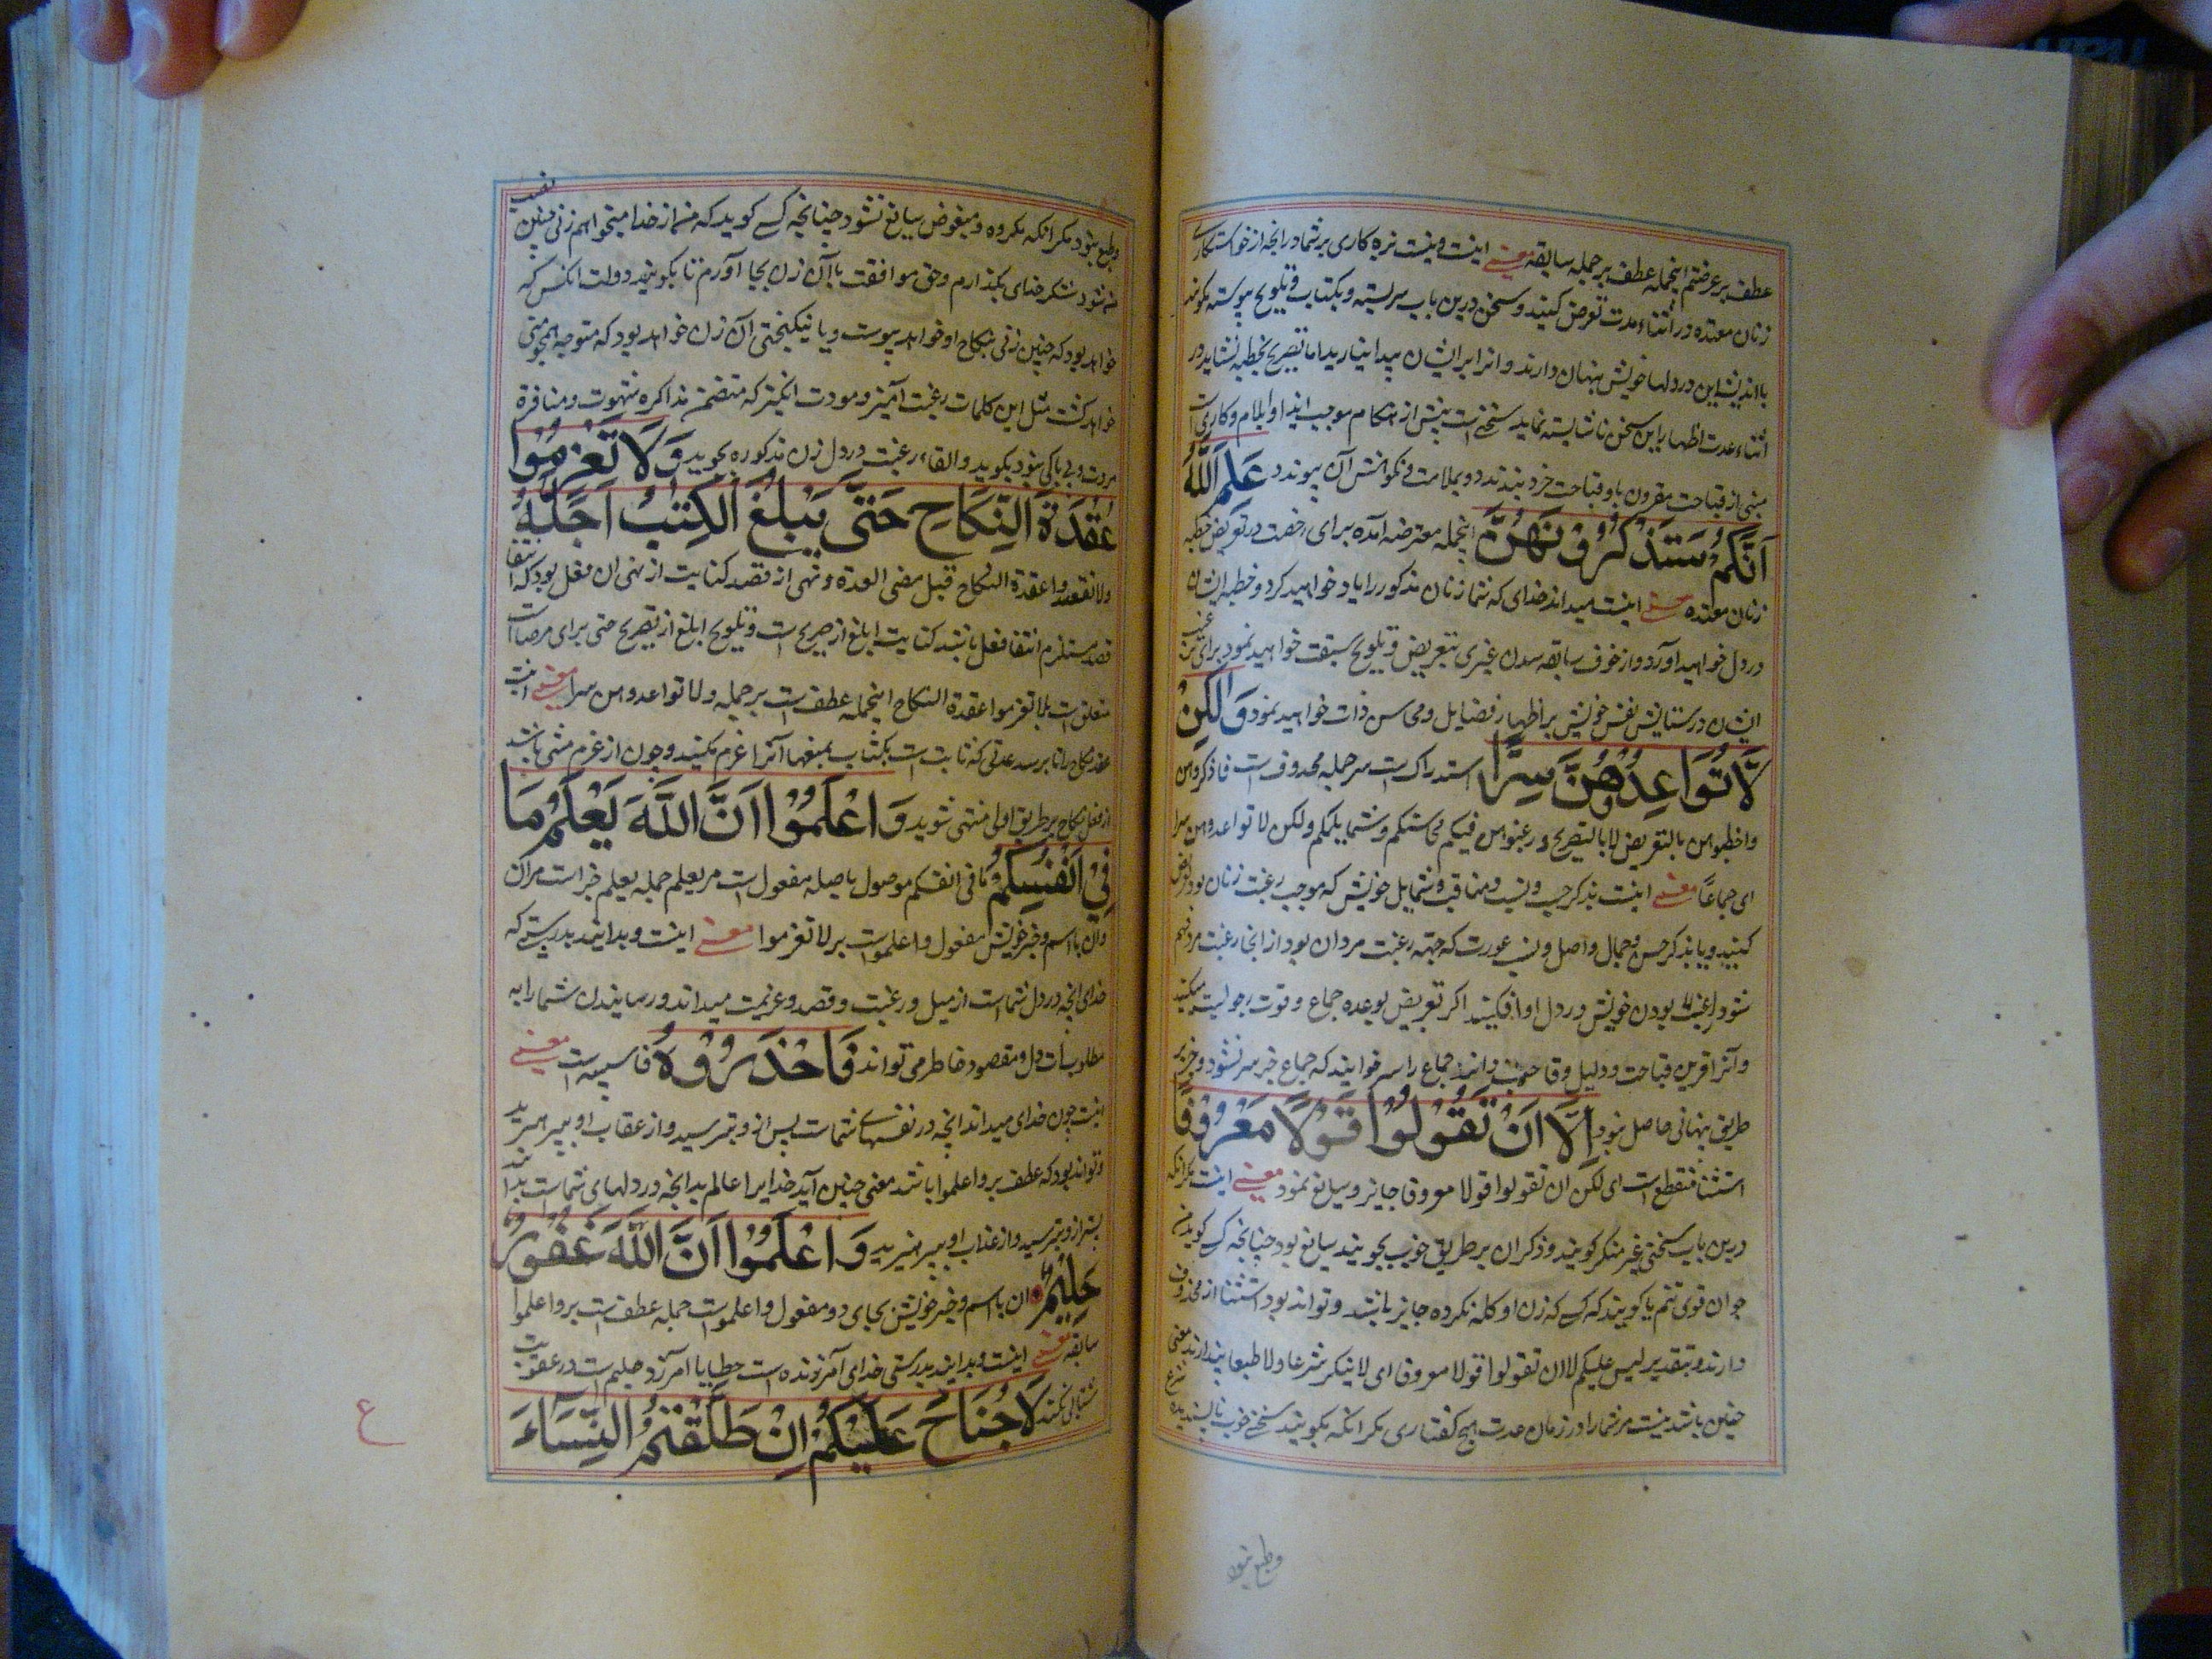 عطف بر عرضتم اینجمله عطف بر جمله سابقه معنی اینست و نیست بزه کاری بر شما در آنچه از خواستکاری
زنان معتده در اثناء عدت تعرض کنید و سخن درین باب سربسته و بکنایت و تلویح پیوسته بکویند
یا اندیشه این در دلها خویش پنهان دارند و انرا بر ایشان پیدا نیارید اما تصریح بخطبه نشاید در
اثناء عدت اظهار این سخن ناشایسته نماید
علم الله
انکم ستذکرونهن اینجمله معترضه آمده برای رخصت در تعریض خطبه
زنان معتده معنی اینست میداند خدای که شما زنان مذکور را یاد خواهید کرد و خطبه ایشان
در دل خواهید آورد و از خوف سابقه شدن غیری بتعریض و تلویح سبقت خواهید نمود
ایشان در ستایش نفس خویش بر اظهار فضایل و محاسن ذات خواهید نمود ولکن
لا تواعدوهن سرا استدراک است سر جمله محذوف است فاذکروهن
واخطبوهن بالتعریض لا بالتصریح ورغبوهن فیکم محاسنکم وشمایلکم ولکن لا تواعدوهن سرا
ای جماعا معنی اینست بذکر حسب و نسب و مناقب و شمایل خویش که موجب رغبت زنان بود
کنید و یا بذکر حسن و جمال و اصل و نسب عورت که جهة رغبت مردان بود از انجا رغبت مردهم
شود راغب بودن خویش در دل او افکنید اکر تعریض بوعده جماع و قوت رجولیت میکنید
و آنرا قرین قباحت و دلیل وقاحت دانند جماع را سر خوانند که جماع خبر سر نشود و جز بر
طریق پنهانی حاصل نبود الا ان تقولوا قولا معروفا
استثنا منقطع است ای لکن ان تقولوا قولا معروفا جایز و سایغ نمود معنی اینست مکر انکه
درین باب سخنی غیر منکر کویند و ذکر ان بر طریق خوب بجویند سایغ بود چنانچه کسی کوید من
جوان قوی تنم یا کویند که کسی که زن او کله نکرده جایز باشد و تواند بود استثنا از محذوف
دارند و بتقدیر لیس علیکم الا ان تقولوا قولا معروفا ای لا ینکر شرعا ولا طبعا پندارند معنی
چنین باشد نیست مر شما را در زمان عدت هیچ کفتاری مکر انکه بکویند سخنی خوب پسندیده شرع
وطبع نبود
وطبع نبود مکر انکه مکروه و مبغوض سایغ نشود چنانچه کسی کوید که من از خدا میخواهم زنی چنین نصیب
من شود شکر خدای بکذارم و حق موافقت با آن زن بجا آورم تا بکویند دولت انکس که
خواهد بود که چنین زنی بنکاح او خواهد پیوست و یا نیکبختی آن زن خواهد بود که متوجه همچو منی
خواهد کشت مثل این کلمات رغبت آمیز و مودت انکیز که متضمن مذاکره شهوت و منافرة
مروت و بی باکی نبود بکوید و القاء رغبت در دل زن مذکوره بجوید ولا تعزموا
عقدة النکاح حتی یبلغ الکتب اجله
ولا تقصدوا عقدة النکاح قبل مضی العدة و نهی از قصد کنایت از نهی ان فعل بود که انتفا
قصد مستلزم انتفا فعل باشد کنایت ابلغ از صریح است و تلویح ابلغ از تصریح حتی برای
متعلق است بلا تعزموا عقدة النکاح اینجمله عطف است بر جمله ولا تواعدوهن سرا معنی اینست
عقد نکاح را تا برسد عدتی که ثابت است بکتاب بمنتها آنرا عزم مکنید و چون از عزم منهی باشید
از فعل نکاح بر طریق اولی منتهی شوید واعلموا ان الله یعلم ما
فی انفسکم ما فی انفسکم موصول با صله مفعول است مر یعلم جمله یعلم خبر است مر ان
وان با اسم و خبر خویش مفعول واعلموا است بر لا تعزموا معنی اینست و بدانید بدرستی که
خدای انچه در دل شماست از میل و رغبت و قصد و عزیمت میداند و رسانیدن شما را به
مطلوبات دل و مقصود خاطر می تواند فاحذروه فا سببیه است معنی
اینست چون خدای میداند انچه در نفسهای شماست پس از و بترسید و از عقاب او بپرهیزید
و تواند بود که عطف بر واعلموا باشد معنی چنین آید خدایرا عالم بدانچه در دلهای شماست بدانند
پس از و بترسید و از عذاب او بپرهیزید واعلموا ان الله غفور
حلیم ان با اسم و خبر خویش بجای دو مفعول واعلموا است جمله عطف است بر واعلموا
سابقه معنی اینست و بدانید بدرستی خدای آمرزنده است خطایا آمرزد و حلیم است در عقوبت
شتابی نکند لا جناح علیکم ان طلقتم النساء
ع